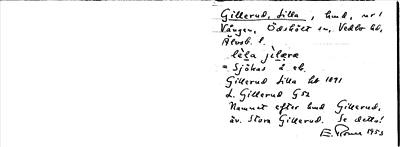 Gillerud, Lilla, hmd, nr 1
Vången, Ödskölt sn, Vedbo hd,
Älvsb. l.
lìla jìlərə
= Sjökas 2 ek.
Gillerud Lilla ht 1891
L. Gillerud G 52
Namnet efter hmd Gillerud,
äv. Stora Gillerud. Se detta!
E. 1953